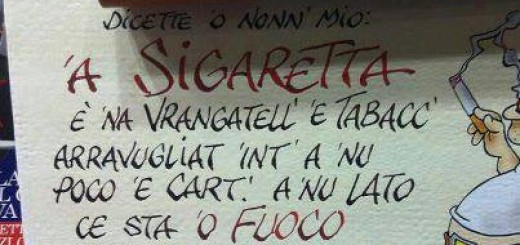 DICETTE 'O NONN' MIO:
'A SIGARETTA
È 'NA VRANGATELL' 'E TABACC'
ARRAVUGLIAT 'INT' A 'NU
POCO 'E CART.' A 'NU LATO
CE STA 'O FUOCO